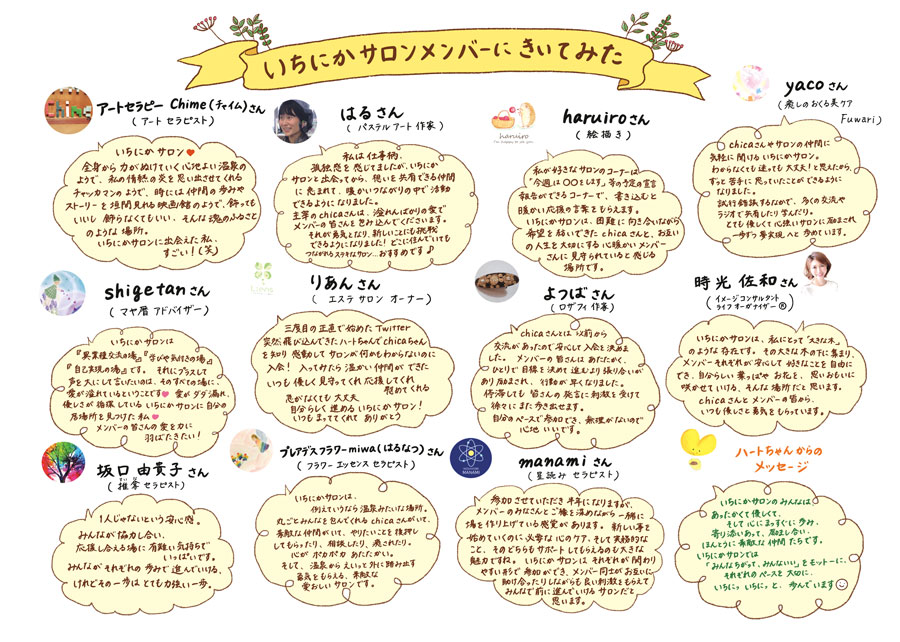 いちにかサロンメンバーにきいてみた
アートセラピー Chime(チャイム)さん
(アートセラピスト)
いちにかサロン❤
全身から力がぬけていく心地よい温泉の
ようで、私の情熱の炎を思い出させてくれる
チャッカマンのようで、時には仲間の歩みや
ストーリーを垣間見れる映画館のようで、飾っても
いいし飾らなくてもいい、そんな魂のふるさと
のような場所。
いちにかサロンに出会えた私、
すごい!(笑)
はるさん
(パステルアート作家)
私は仕事柄、
孤独感を感じてましたが、いちにか
サロンと出会ってから、想いを共有できる仲間
に恵まれ、暖かいつながりの中で活動
できるようになりました!
主宰のchicaさんは、溢れんばかりの愛で
メンバーの皆さんを包み込んでくださいます。
それが勇気となり、新しいことにも挑戦
できるようになりました!どこに住んでいても
つながれるステキなサロン…おすすめです♪
haruiro
haruiroさん
(絵描き)
私が好きなサロンのコーナーは
「今週は〇〇をします」等の予定の宣言
報告ができるコーナーで、書き込むと
暖かい応援の言葉をもらえます。
いちにかサロンは、困難に向き合いながら
希望を紡いできたchicaさんと、お互い
の人生を大切にする心暖かいメンバー
さんに見守られていると感じる
場所です。
yacoさん
(癒しのおくるみケア
Fuwari)
chicaさんやサロンの仲間に
気軽に聞けるいちにかサロン。
わからなくても迷っても大丈夫!と思えたから、
ずっと苦手に思っていたことができるように
なりました。
試行錯誤するなかで、多くの交流や
ラジオで共有したり学んだり。
とても優しくて心強いサロンに励まされ
一歩ずつ夢実現へと歩めています。
shigetanさん
(マヤ暦アドバイザー)
いちにかサロンは
『異業種交流の場』『学びや気付きの場』
『自己実現の場』です。それにプラスして
声を大にして言いたいのは、そのすべての場に、
愛が溢れているということです❤愛がダダ漏れ、
優しさが循環しているいちにかサロンに自分の
居場所を見つけた私❤
メンバーの皆さんの愛を力に
羽ばたきたい!
りあんさん
(エステサロン オーナー)
三度目の正直で始めたTwitter
突然飛び込んできたハートちゃんとchicaちゃん
を知り 感動して サロンが何かもわからないのに
入会! 入ってみたら温かい仲間ができた
いつも優しく見守ってくれ 応援してくれ
慰めてくれる
急がなくても大丈夫
自分らしく進めるいちにかサロン!
いつもまっててくれてありがとう
よつばさん
(ロザフィ作家)
chicaさんとは以前から
交流があったので安心して入会を決めま
した。メンバーの皆さんはあたたかく、
ひとりで目標を決めて進むより張り合いが
あり励まされ、行動が早くなりました。
停滞しても皆さんの発言に刺激を受けて
徐々にまた歩き出せます。
自分のペースで参加でき、無理がないので
心地いいです。
時光 佐和さん
(イメージコンサルタント
ライフオーガナイザー®)
いちにかサロンは、私にとって"大きな木"
のような存在です。その大きな木の下に集まり、
メンバーそれぞれが安心して好きなことを自由に
でき、自分らしい葉っぱやお花を、思いおもいに
咲かせていける、そんな場所だと思います。
chicaさんとメンバーの皆から、
いつも優しさと勇気をもらっています。
坂口 由貴子さん
(推拿セラピスト)
1人じゃないという安心感。
みんなが協力し合い、
応援し合える場に有難い気持ちで
いっぱいです。
みんながそれぞれの歩みで進んでいける、
けれどその一歩はとても力強い一歩。
プレアデスフラワーmiwa(はるなつ)さん
(フラワーエッセンスセラピスト)
いちにかサロンは、
例えていうなら温泉みたいな場所。
丸ごとみんなを包んでくれるchicaさんがいて、
素敵な仲間がいて、やりたいことを後押し
してもらったり、相談したり、癒されたり。
心がポカポカあたたかい。
そして、温泉からえいっと外に踏み出す
勇気をもらえる、素敵な
愛おしいサロンです。
MANAMI
manamiさん
(星読みセラピスト)
参加させていただき半年になりますが、
メンバーのみなさんとご縁を深めながら一緒に
場を作り上げている感覚があります。新しい事を
始めていくのに必要な心のケア、そして実務的な
こと、そのどちらもサポートしてもらえるのも大きな
魅力ですね。いちにかサロンはそれぞれが関わり
やすい形で参加ができ、メンバー同士がお互いに
助け合ったりしながらも良い刺激をもらえて
みんなで前に進んでいけるサロンだと
思います。
ハートちゃんからの
メッセージ
いちにかサロンのみんなは
あったかくて優しくて、
そして心にまっすぐに歩み、
寄り添いあって、励まし合い、
ほんとうに素敵な仲間たちです。
いちにかサロンでは
「みんなちがって、みんないい」をモットーに、
それぞれのペースを大切に、
いちにっ いちにっと、歩んでいます☺